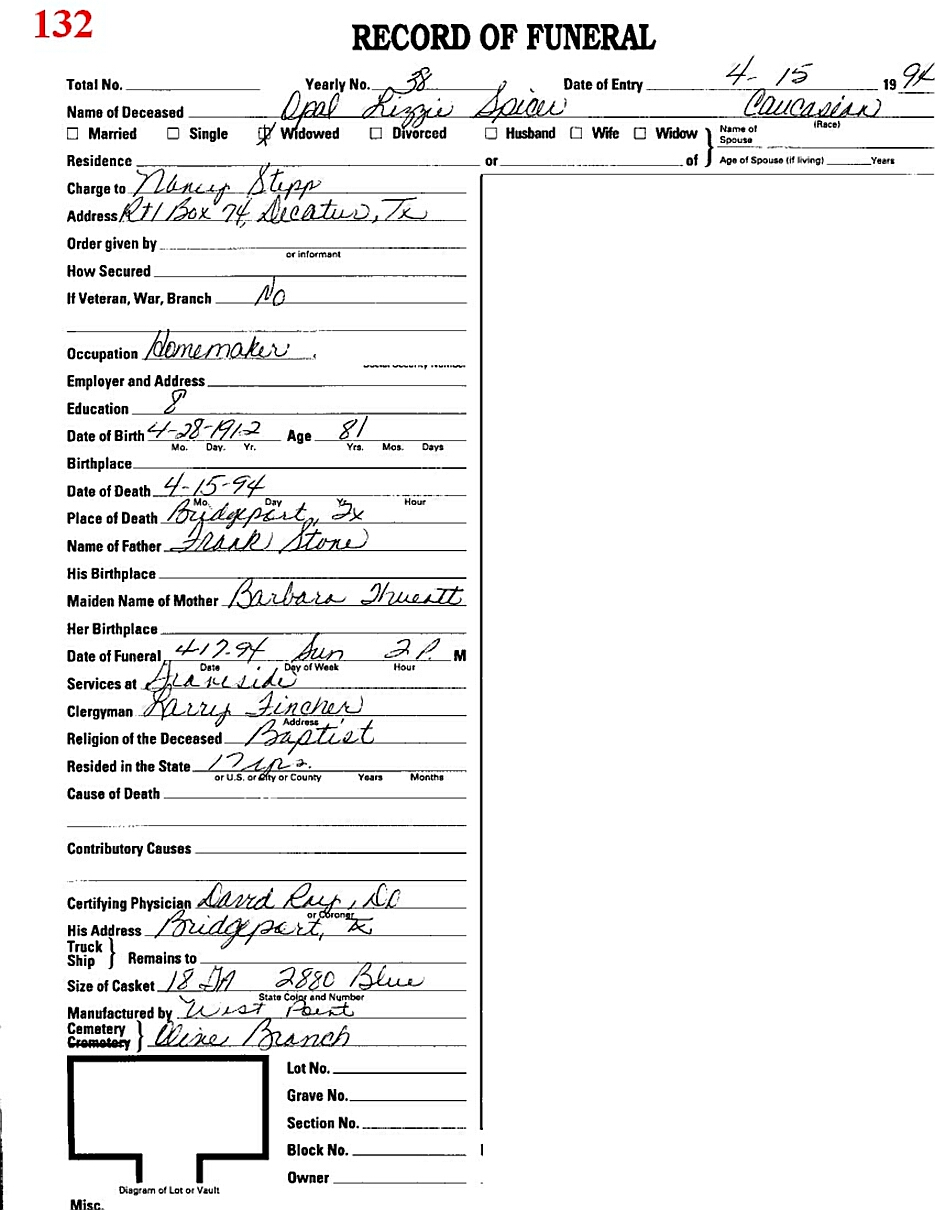 132
RECORD OF FUNERAL
Total No. Yearly No. 38 Date of Entry 4-15 1994
Name of Deceased Opal Lizzie Spicer Caucasian
(Race)
☐ Married ☐ Single ☒ Widowed ☐ Divorced ☐ Husband ☐ Wife ☐ Widow } Name of Spouse
Residence or of Age of Spouse (if living) Years
Charge to Nancy Stepp
Address Rt 1 Box 74, Decatur, Tx
Order given by
or informant
How Secured
If Veteran, War, Branch No
Occupation Homemaker
Social Security Number
Employer and Address
Education 8
Date of Birth 4-28-1912 Age 81
Mo. Day. Yr. Yrs. Mos. Days
Birthplace
Date of Death 4-15-94
Mo. Day Yr. Hour
Place of Death Bridgeport, Tx
Name of Father Frank Stone
His Birthplace
Maiden Name of Mother Barbara Thweatt
Her Birthplace
Date of Funeral 4-17-94 Sun 2 P. M
Date Day of Week Hour
Services at Graveside
Clergyman Larry Fincher
Address
Religion of the Deceased Baptist
Resided in the State 17 yrs.
or U.S. or City or County Years Months
Cause of Death
Contributory Causes
Certifying Physician David Ray, DO
or Coroner
His Address Bridgeport, Tx
Truck Ship } Remains to
Size of Casket 18 GA 2880 Blue
State Color and Number
Manufactured by West Point
Cemetery Crematory } Olive Branch
Lot No.
Grave No.
Section No.
Block No.
Owner
Diagram of Lot or Vault
Misc.